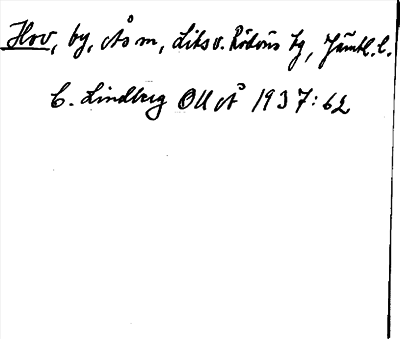 Hov, by, Ås m, Liks v. Rödöns tg, Jämtl. l.
C. Lindberg OUÅ 1937: 62